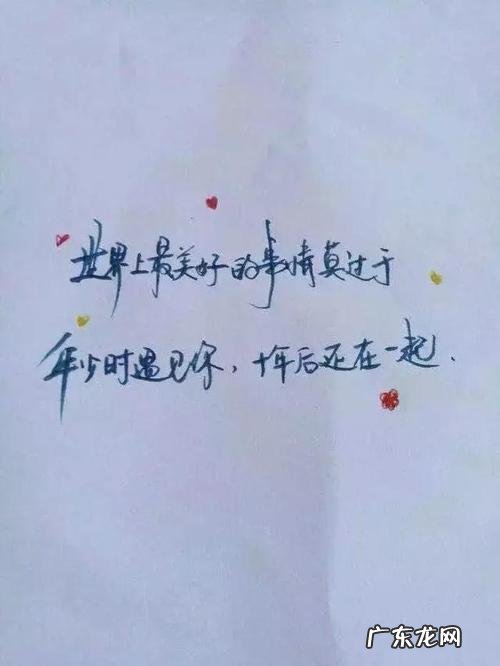 世界上最美好的事情莫过于
年少时遇见你，十年后还在一起.
广东龙网